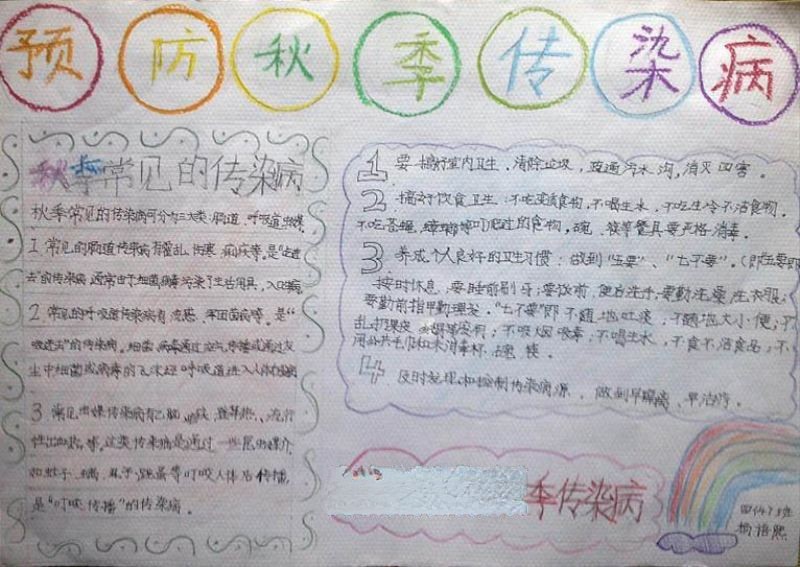 预防秋季传染病
秋季常见的传染病
秋季常见的传染病可分为三大类:肠道、呼吸道、虫媒
1 常见的肠道传染病有霍乱、伤寒、痢疾等。是“吃进
去”的传染病 通常由于细菌病毒污染了生活用具,入口
2 常见的呼吸道传染病有流感、军团菌病等。是“
吸进去”的传染病。细菌病毒通过空气传播或通过
生中细菌或病毒的 经呼吸道进入人体
3 常见虫媒传染病有乙脑、登革热、流行
性出血热等。这类传染病是通过一些昆虫媒介
如蚊子、蚤子、跳蚤等叮咬人体后传播,
是“叮咬传播”的传染病。
1 要搞好室内卫生,清除垃圾,疏通污水沟,消灭四害。
2 搞好饮食卫生:不吃变质食物,不喝生水,不吃生冷不洁食物,
不吃苍蝇、蟑螂等叮爬过的食物,碗、筷等餐具要严格消毒。
3 养成个人良好的卫生习惯:做到“五要”、“七不要”。(即五要即
按时休息,要睡前刷牙;要饭前,便后洗手;要勤洗澡,洗衣服;
要勤剪指甲勤理发。“七不要”即不随地吐痰,不随地大小便;不
乱扔果皮 等废物;不吸烟吸毒;不喝生水,不食不洁食品;不
用公共毛巾和未消毒杯、碗、筷
4 及时发现和控制传染病源,做到早隔离、早治疗。
季传染病
四(4)班
杨